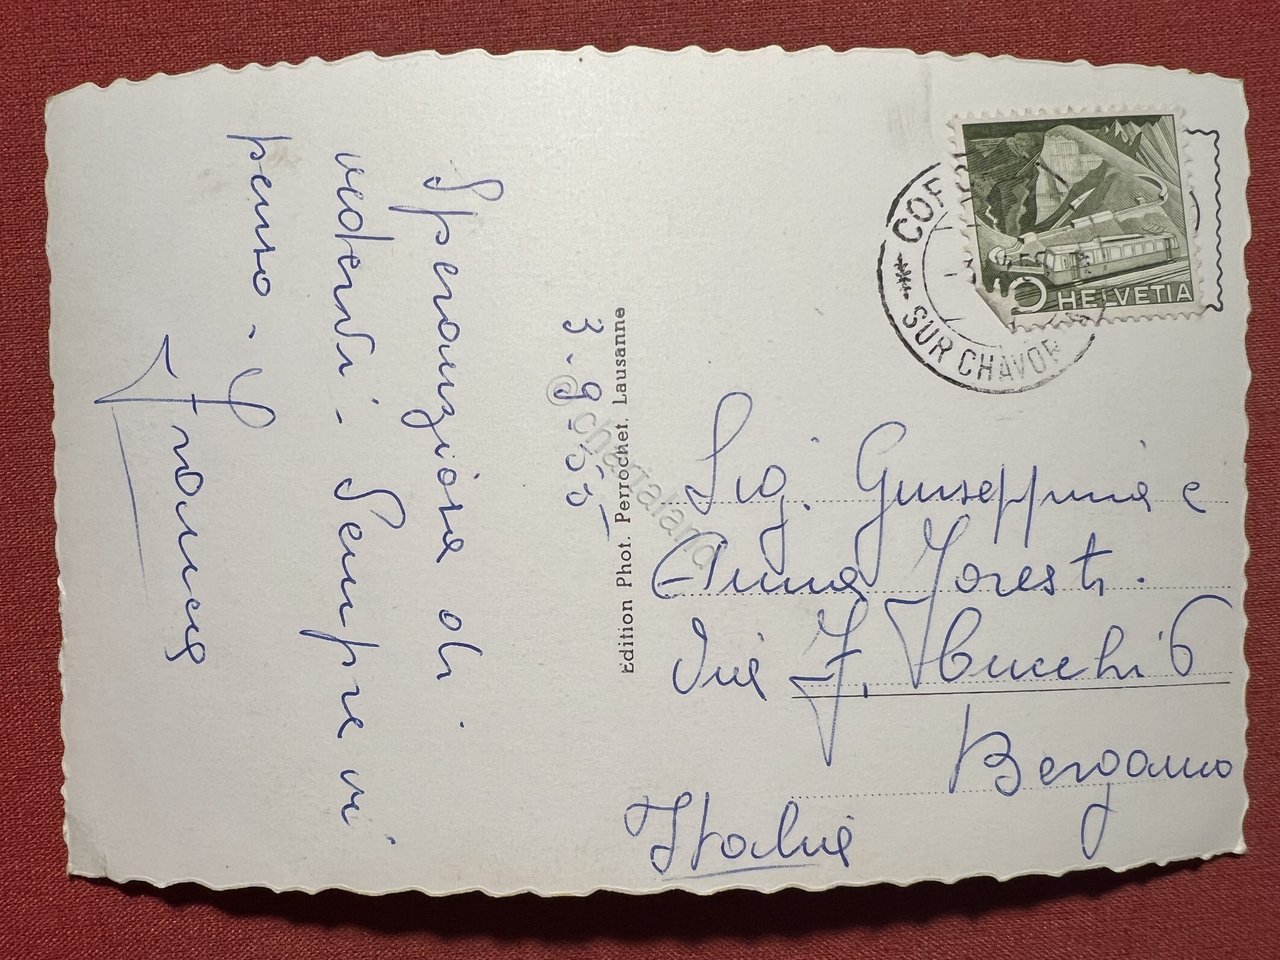 3.9.55
Speranziosa di
vedervi - Sempre vi
penso -
Franca
Edition Phot. Perrochet. Lausanne
Sig. Giuseppina e
Anna Foresti.
Via F. Nucchi 6
Bergamo
Italia
HELVETIA
10
SUR CHAVOR
© chartaland